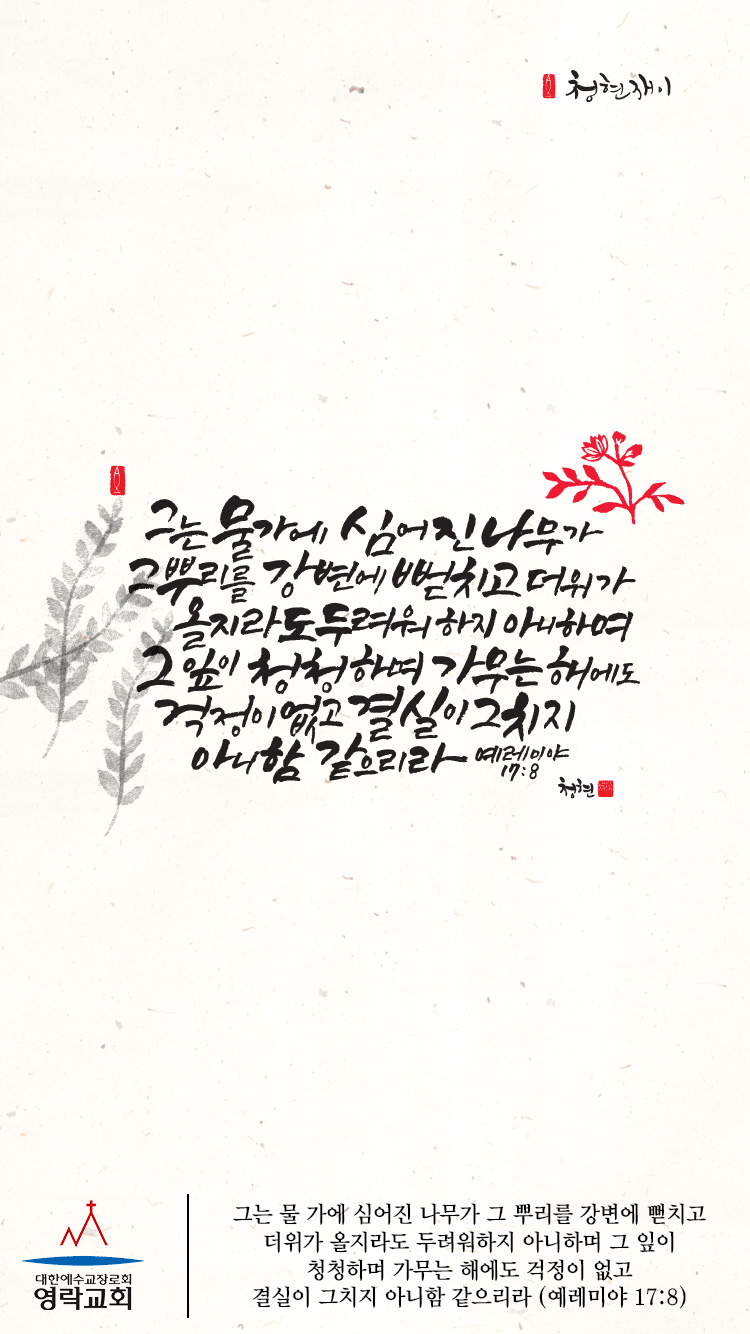 청현재이
그는 물가에 심어진 나무가
그 뿌리를 강변에 뻗치고 더위가
올지라도 두려워 하지 아니하며
그 잎이 청청하며 가무는 해에도
걱정이 없고 결실이 그치지
아니함 같으리라 예레미야
17:8
청현
대한예수교장로회
영락교회
그는 물 가에 심어진 나무가 그 뿌리를 강변에 뻗치고
더위가 올지라도 두려워하지 아니하며 그 잎이
청청하며 가무는 해에도 걱정이 없고
결실이 그치지 아니함 같으리라 (예레미야 17:8)